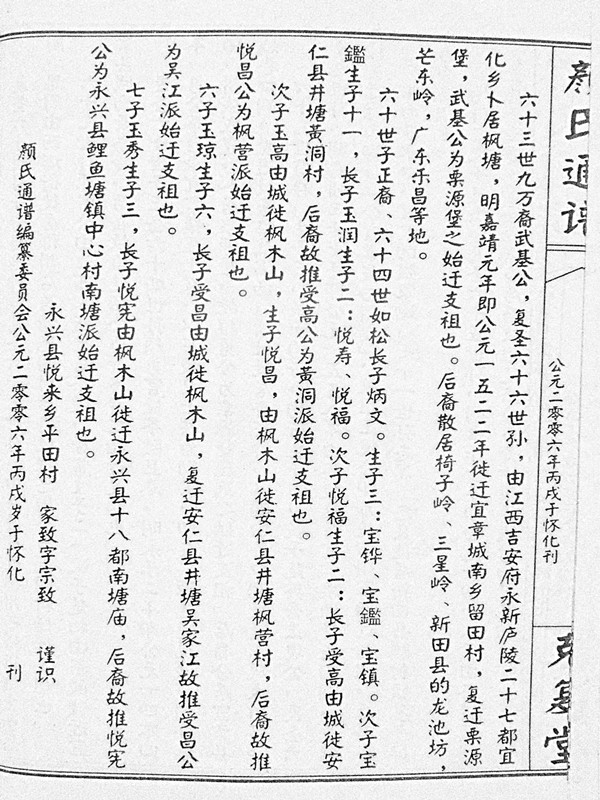 颜氏通谱
公元二零零六年丙戌于怀化刊
克复堂
六十三世九万裔武基公，复圣六十六世孙，由江西吉安府永新庐陵二十七都宜
化乡卜居枫塘，明嘉靖元年即公元一五二二年徙迁宜章城南乡留田村，复迁栗源
堡，武基公为栗源堡之始迁支祖也。后裔散居椅子岭、三星岭、新田县的龙池坊，
芒东岭，广东乐昌等地。
六十世子正裔、六十四世如松长子炳文。生子三：宝铧、宝鑑、宝镇。次子宝
鑑生子十一，长子玉润生子二：悦寿、悦福。次子悦福生子二：长子受高由城徙安
仁县井塘黄洞村，后裔故推受高公为黄洞派始迁支祖也。
次子玉高由城徙枫木山，生子悦昌，由枫木山徙安仁县井塘枫营村，后裔故推
悦昌公为枫营派始迁支祖也。
六子玉琼生子六，长子受昌由城徙枫木山，复迁安仁县井塘吴家江故推受昌公
为吴江派始迁支祖也。
七子玉秀生子三，长子悦宪由枫木山徙迁永兴县十八都南塘庙，后裔故推悦宪
公为永兴县鲤鱼塘镇中心村南塘派始迁支祖也。
永兴县悦来乡平田村 家致字宗致 谨识
颜氏通谱编纂委员会公元二零零六年丙戌岁于怀化 刊